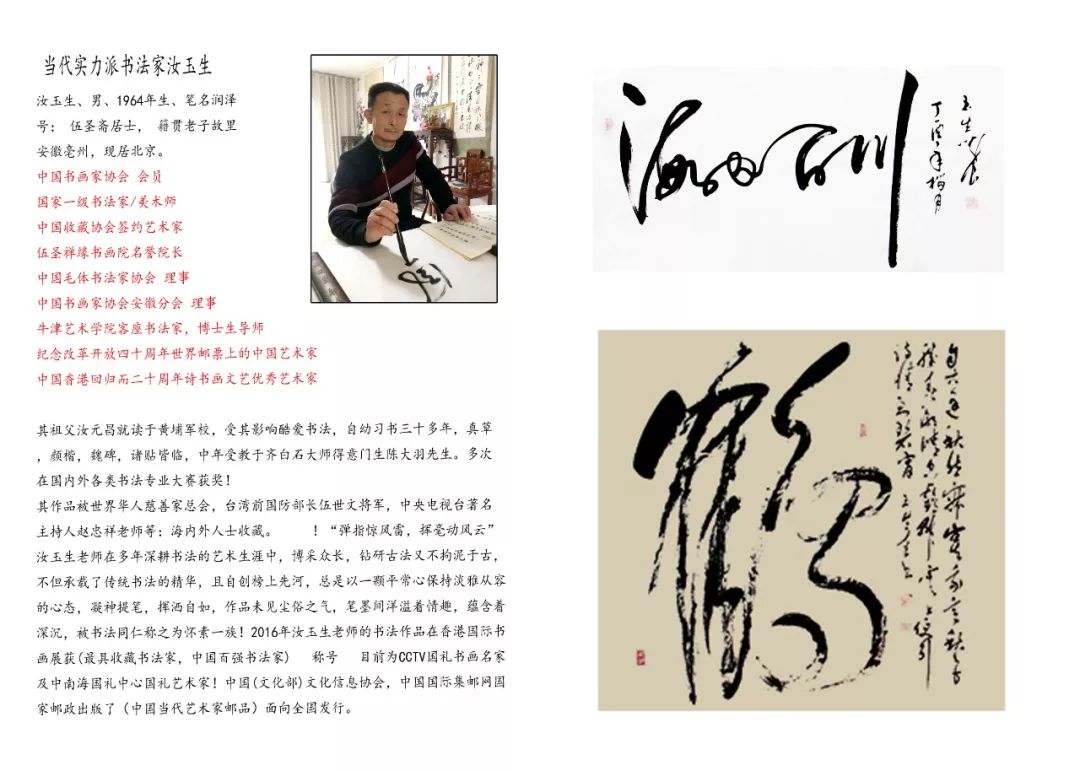 当代实力派书法家汝玉生
汝玉生、男、1964年生、笔名润泽
号： 伍圣斋居士， 籍贯老子故里
安徽亳州，现居北京。
中国书画家协会 会员
国家一级书法家/美术师
中国收藏协会签约艺术家
伍圣禅缘书画院名誉院长
中国毛体书法家协会 理事
中国书画家协会安徽分会 理事
牛津艺术学院客座书法家，博士生导师
纪念改革开放四十周年世界邮票上的中国艺术家
中国香港回归而二十周年诗书画文艺优秀艺术家
其祖父汝元昌就读于黄埔军校，受其影响酷爱书法，自幼习书三十多年，真草
，颜楷，魏碑，诸贴皆临，中年受教于齐白石大师得意门生陈大羽先生。多次
在国内外各类书法专业大赛获奖！
其作品被世界华人慈善家总会，台湾前国防部长伍世文将军，中央电视台著名
主持人赵忠祥老师等：海内外人士收藏。 ！“弹指惊风雷，挥毫动风云”
汝玉生老师在多年深耕书法的艺术生涯中，博采众长，钻研古法又不拘泥于古，
不但承载了传统书法的精华，且自创榜上先河，总是以一颗平常心保持淡雅从容
的心态，凝神提笔，挥洒自如，作品未见尘俗之气，笔墨间洋溢着情趣，蕴含着
深沉，被书法同仁称之为怀素一族！2016年汝玉生老师的书法作品在香港国际书
画展获(最具收藏书法家，中国百强书法家) 称号 目前为CCTV国礼书画名家
及中南海国礼中心国礼艺术家！中国(文化部)文化信息协会，中国国际集邮网国
家邮政出版了（中国当代艺术家邮品）面向全国发行。
海纳百川
丁酉年梅月
玉生书
鹤
自古逢秋悲寂寥我言秋日
胜春朝晴空一鹤排云上便引
诗情到碧霄 玉生书